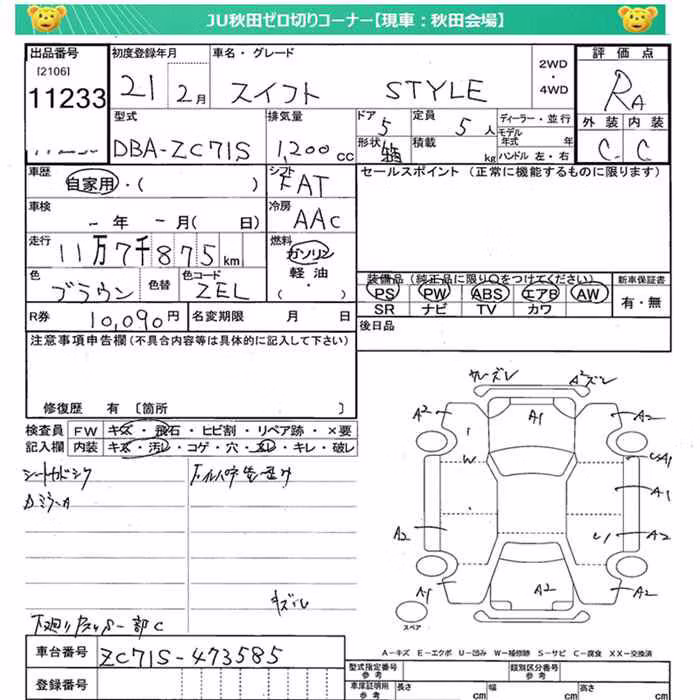 JU秋田ゼロ切りコーナー【現車：秋田会場】
出品番号 初度登録年月 車名・グレード 2WD・4WD 評価点
[2106]
11233 21 2月 スイフト STYLE RA
型式 排気量 ドア 定員 ディーラー・並行 外装 内装
DBA-ZC71S 1,200cc 5 5人 モデル年式 年 C C
形状 積載 kg ハンドル 左・右
車歴 自家用・( ) シフト FAT セールスポイント（正常に機能するものに限ります）
車検 -年 -月( 日) 冷房 AAC
走行 11万7千875km 燃料 ガソリン
軽油・( )
色 ブラウン 色替 色コード ZEL
装備品（純正品に限り○をつけてください） 新車保証書
PS PW ABS エアB AW 有・無
SR ナビ TV カワ
R券 10,090円 名変期限 月 日
後日品
注意事項申告欄（不具合内容等は具体的に記入して下さい）
修復歴 有 〔箇所 〕
検査員 FW キズ・飛石・ヒビ割・リペア跡・×要
記入欄 内装 キズ・汚レ・コゲ・穴・スレ・キレ・破レ
A2 A1 A2
W A1
A1
A2 A2
A1 A2 A2
スペア
A-キズ E-エクボ U-凹み W-補修跡 S-サビ C-腐食 XX-交換済
車台番号 ZC71S-473585
登録番号
型式指定番号 参考 類別区分番号 参考
車庫証明用 参考 長さ cm 幅 cm 高さ cm